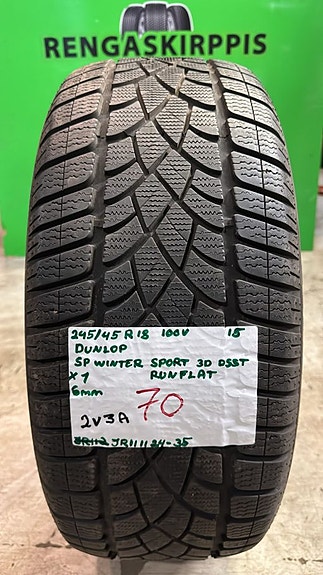 RENGASKIRPPIS
245/45 R18 100V 15
DUNLOP
SP WINTER SPORT 3D DSST
X 1 RUNFLAT
6mm 70
2V3A
JR111124-35